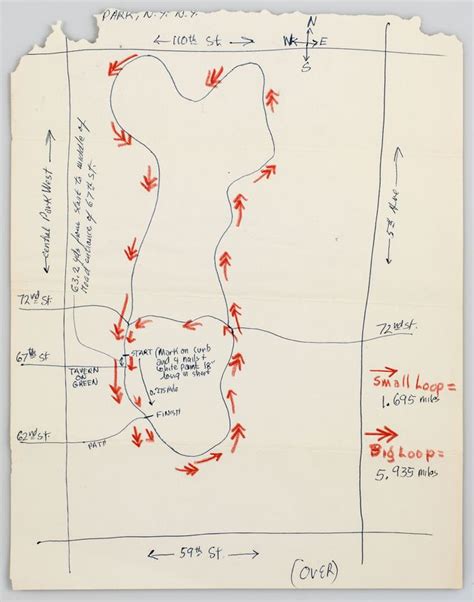 PARK, N.Y. N.Y.
110th St.
N
W E
S
Central Park West
63.2 yds from start to middle of
Road entrance of 67th St.
5th Ave
72nd St.
72nd St.
START (Mark on curb
and 4 nails +
white paint 18"
long on street
67th St.
TAVERN
ON
GREEN
0.275 mile
FINISH
62nd St.
PATH
Small Loop =
1.695 miles
Big Loop =
5.935 miles
59th St.
(OVER)